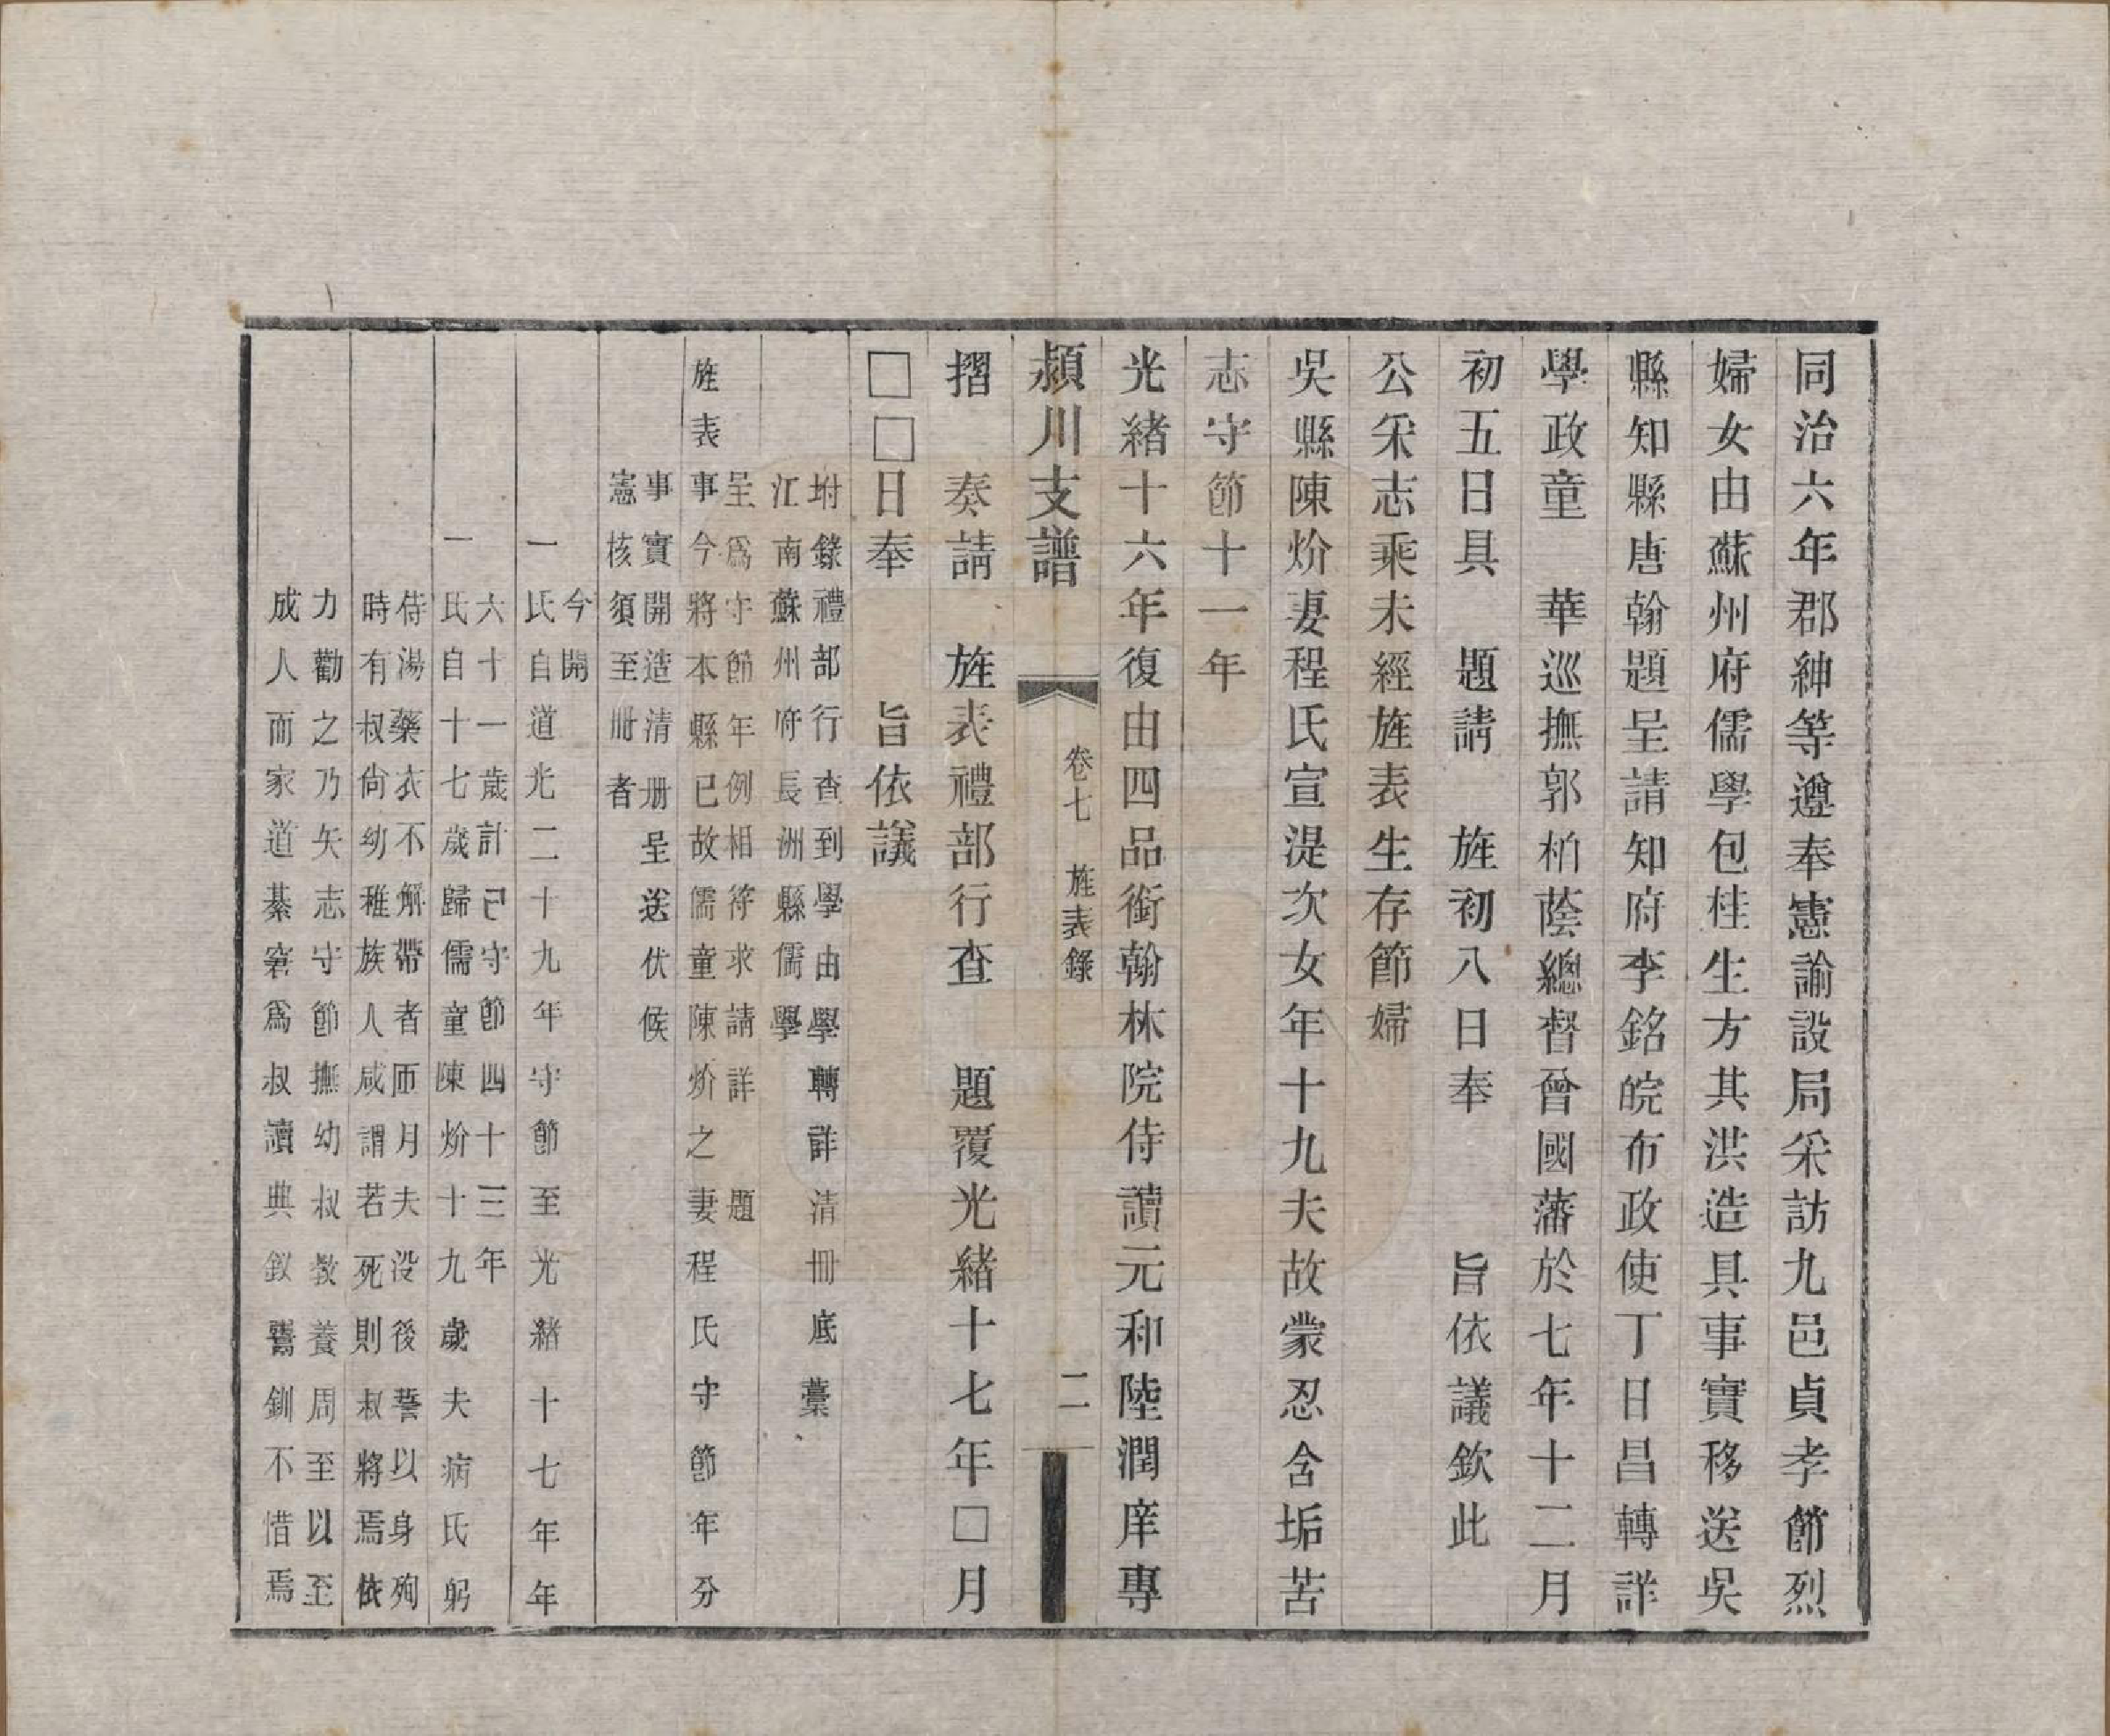 同治六年郡紳等遵奉憲諭設局采訪九邑貞孝節烈
婦女由蘇州府儒學包桂生方其洪造具事實移送吳
縣知縣唐翰題呈請知府李銘皖布政使丁日昌轉詳
學政童　華巡撫郭柏蔭總督曾國藩於七年十二月
初五日具　題請　旌初八日奉　　旨依議欽此
公采志乘未經旌表生存節婦
吳縣陳炌妻程氏宣湜次女年十九夫故蒙忍含垢苦
志守節十一年
光緒十六年復由四品銜翰林院侍讀元和陸潤庠專
潁川支譜
卷七　旌表錄
二
摺　奏請　旌表禮部行查　題覆光緒十七年□月
□□日奉　　旨依議
坿錄禮部行查到學由學轉詳清冊底藁
江南蘇州府長洲縣儒學
呈爲守節年例相符求請詳　題
旌表事今將本縣已故儒童陳炌之妻程氏守節年分
事實開造清册呈送伏候
憲核須至冊者
今開
一氏自道光二十九年守節至光緒十七年年
六十一歲計已守節四十三年
一氏自十七歲歸儒童陳炌十九歲夫病氏躬
侍湯藥衣不解帶者匝月夫没後誓以身殉
時有叔尙幼稚族人咸謂若死則叔將焉依
力勸之乃矢志守節撫幼叔教養周至以至
成人而家道綦窘爲叔讀典釵鬻釧不惜焉